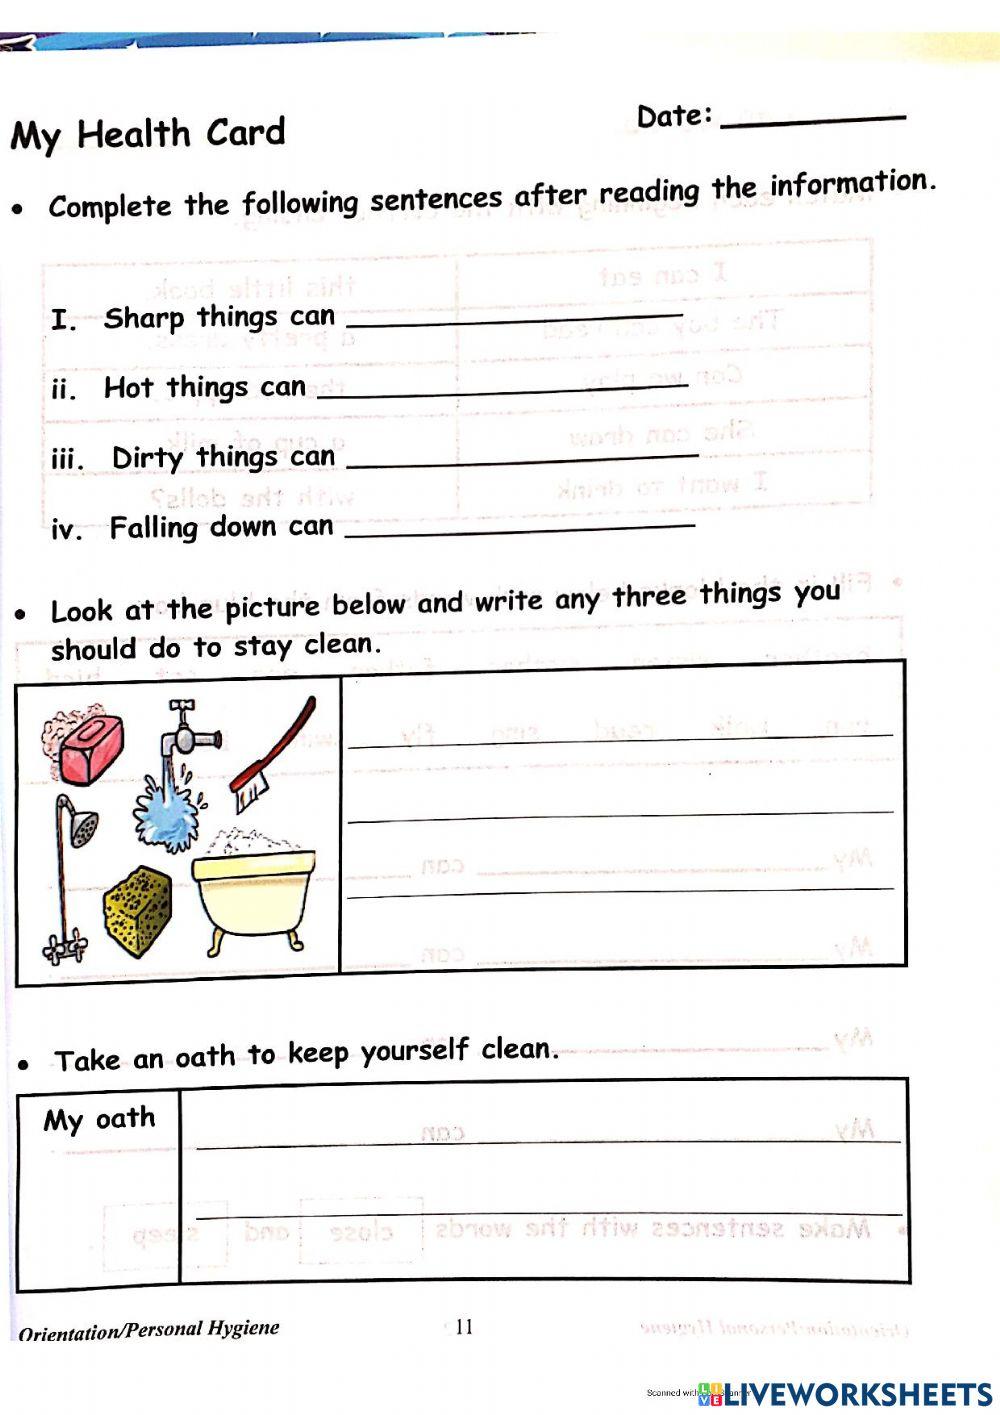 My Health Card
Date:
• Complete the following sentences after reading the information.
I. Sharp things can
ii. Hot things can
iii. Dirty things can
iv. Falling down can
• Look at the picture below and write any three things you
should do to stay clean.
• Take an oath to keep yourself clean.
My oath
Orientation/Personal Hygiene
11
Scanned with
LIVEWORKSHEETS